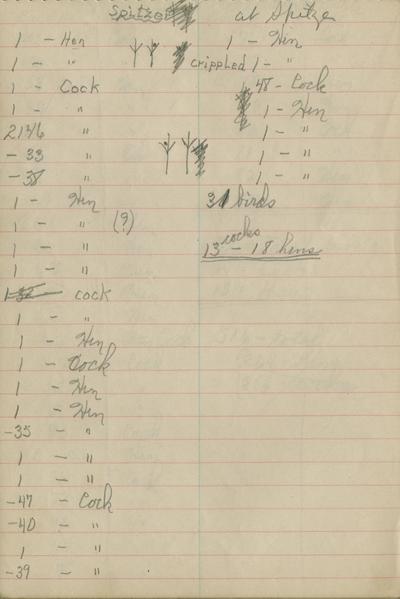 Spitzer
1 - Hen
1 - "
1 - Cock
1 - "
21346 "
- 33 "
- 38 "
1 - Hen
1 - " (?)
1 - "
1 - "
cock
1 - "
1 - Hen
1 - Cock
1 - Hen
1 - Hen
-35 - "
1 - "
1 - "
-47 - Cock
-40 - "
1 - "
-39 - "
at Spitze
1 - Hen
crippled 1 - "
48 - Cock
1 - Hen
1 - "
1 - "
1 - "
31 birds
cocks
13 - 18 hens